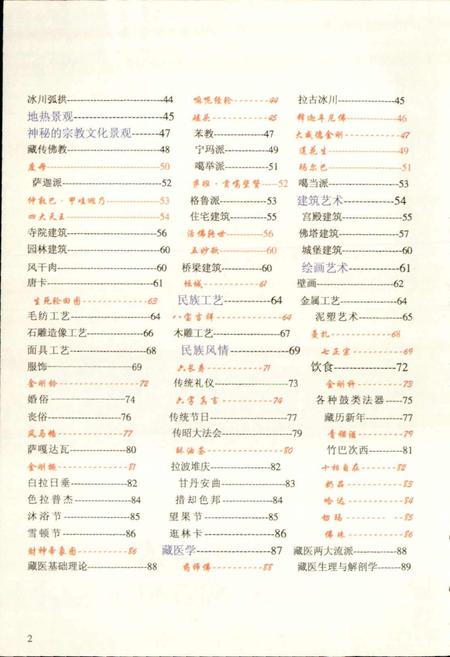 冰川弧拱------44 嘛呢经轮------44 拉古冰川------45
地热景观------45 罐头------45 释迦牟尼佛------46
神秘的宗教文化景观------47 苯教------47 大威德金刚------47
藏传佛教------48 宁玛派------49 莲花生------49
度母------50 噶举派------51 玛尔巴------51
萨迦派------52 萨班·贡噶坚赞------52 噶当派------53
仲敦巴·甲哇迥乃------53 格鲁派------53 建筑艺术------54
四大天王------54 住宅建筑------55 宫殿建筑------55
寺院建筑------56 活佛转世------56 佛塔建筑------57
园林建筑------60 五妙欲------60 城堡建筑------60
风干肉------60 桥梁建筑------60 绘画艺术------61
唐卡------61 坛城------61 壁画------62
生死轮回图------63 民族工艺------64 金属工艺------64
毛纺工艺------64 八宝吉祥------64 泥塑艺术------65
石雕造像工艺------66 木雕工艺------67 曼扎------68
面具工艺------68 民族风情------69 七正宗------69
服饰------69 六长寿------71 饮食------72
金刚铃------72 传统礼仪------73 金刚杵------73
婚俗------74 六字真言------74 各种鼓类法器-----75
丧俗------76 传统节日------77 藏历新年------77
风马幡------77 传昭大法会------79 青稞酒------79
萨嘎达瓦------80 酥油茶------80 竹巴次西------81
金刚橛------81 拉波堆庆------82 十相自在------82
白拉日垂------82 甘丹安曲------83 奶品------83
色拉普杰------84 措却色邦------84 哈达------84
沐浴节------85 望果节------85 糌粑------85
雪顿节------86 逛林卡------86 佛珠------86
财神牵象图------86 藏医学------87 藏医两大流派------88
藏医基础理论------88 药师佛------88 藏医生理与解剖学------89
2